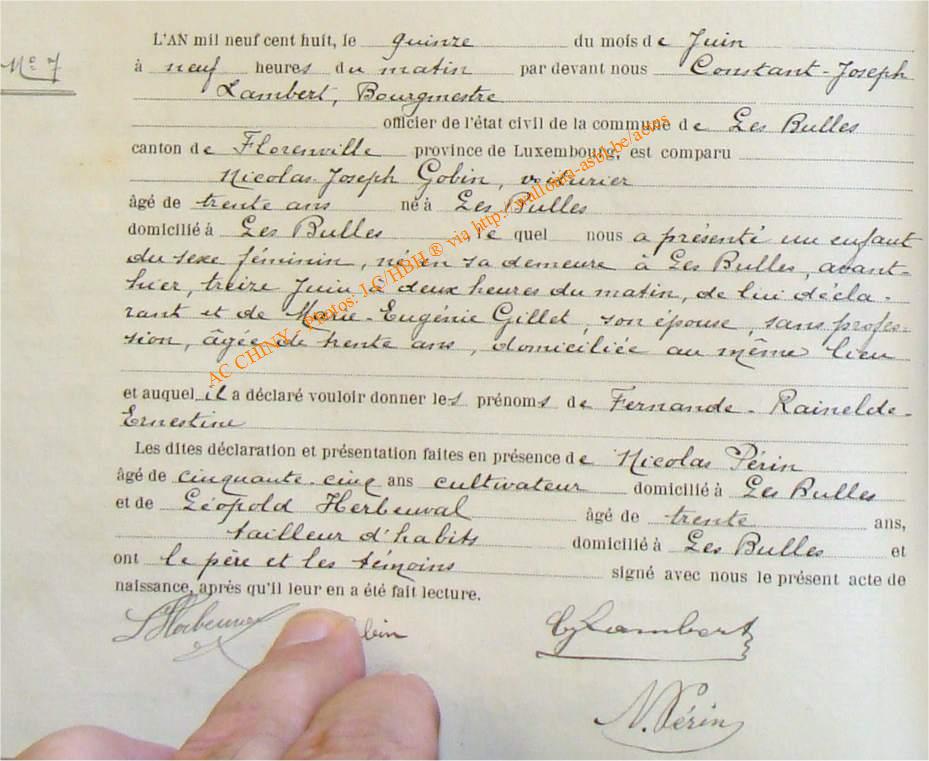 L'AN mil neuf cent huit, le quinze du mois de Juin
N° 7
à neuf heures du matin par devant nous Constant-Joseph
Lambert, Bourgmestre
officier de l'état civil de la commune de Les Bulles
canton de Florenville province de Luxembourg, est comparu
Nicolas-Joseph Gobin, voiturier
âgé de trente ans né à Les Bulles
domicilié à Les Bulles, le quel nous a présenté un enfant
du sexe féminin, né en sa demeure à Les Bulles, avant-
hier, treize Juin à deux heures du matin, de lui décla-
rant et de Marie-Eugénie Gillet, son épouse, sans profes-
sion, âgée de trente ans, domiciliée au même lieu
et auquel il a déclaré vouloir donner les prénoms de Fernande-Rainelde-
Ernestine
Les dites déclaration et présentation faites en présence de Nicolas Périn
âgé de cinquante-cinq ans cultivateur domicilié à Les Bulles
et de Léopold Herbeuval âgé de trente ans,
tailleur d'habits domicilié à Les Bulles et
ont le père et les témoins signé avec nous le présent acte de
naissance, après qu'il leur en a été fait lecture.
L Herbeuval bin CJ Lambert
N. Périn
AC CHINY - Photos: J.C/HBH ® via http://walloara-asbl.be/actes